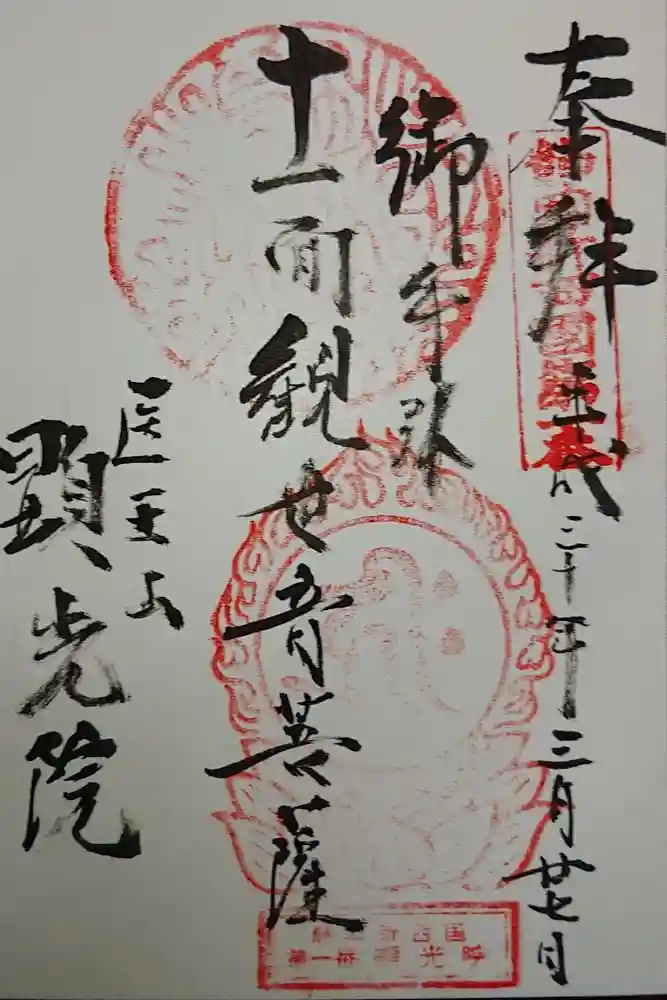 奉拝
平成三十年三月廿七日
御手引
十一面観世音菩薩
医王山
顕光院